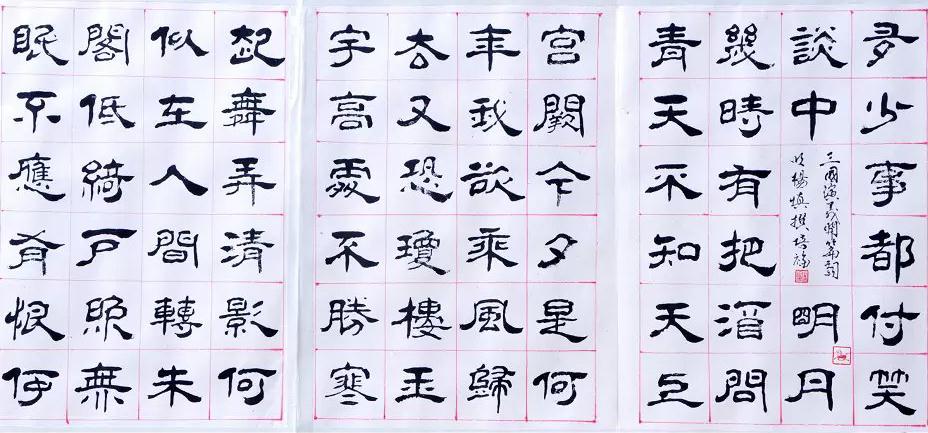 多少事都付笑
談中
三國演義開篇詞
明楊慎撰
明月
幾時有把酒問
青天不知天上
宮闕今夕是何
年我欲乘風歸
去又恐瓊樓玉
宇高處不勝寒
起舞弄清影何
似在人間轉朱
閣低綺戶照無
眠不應有恨何